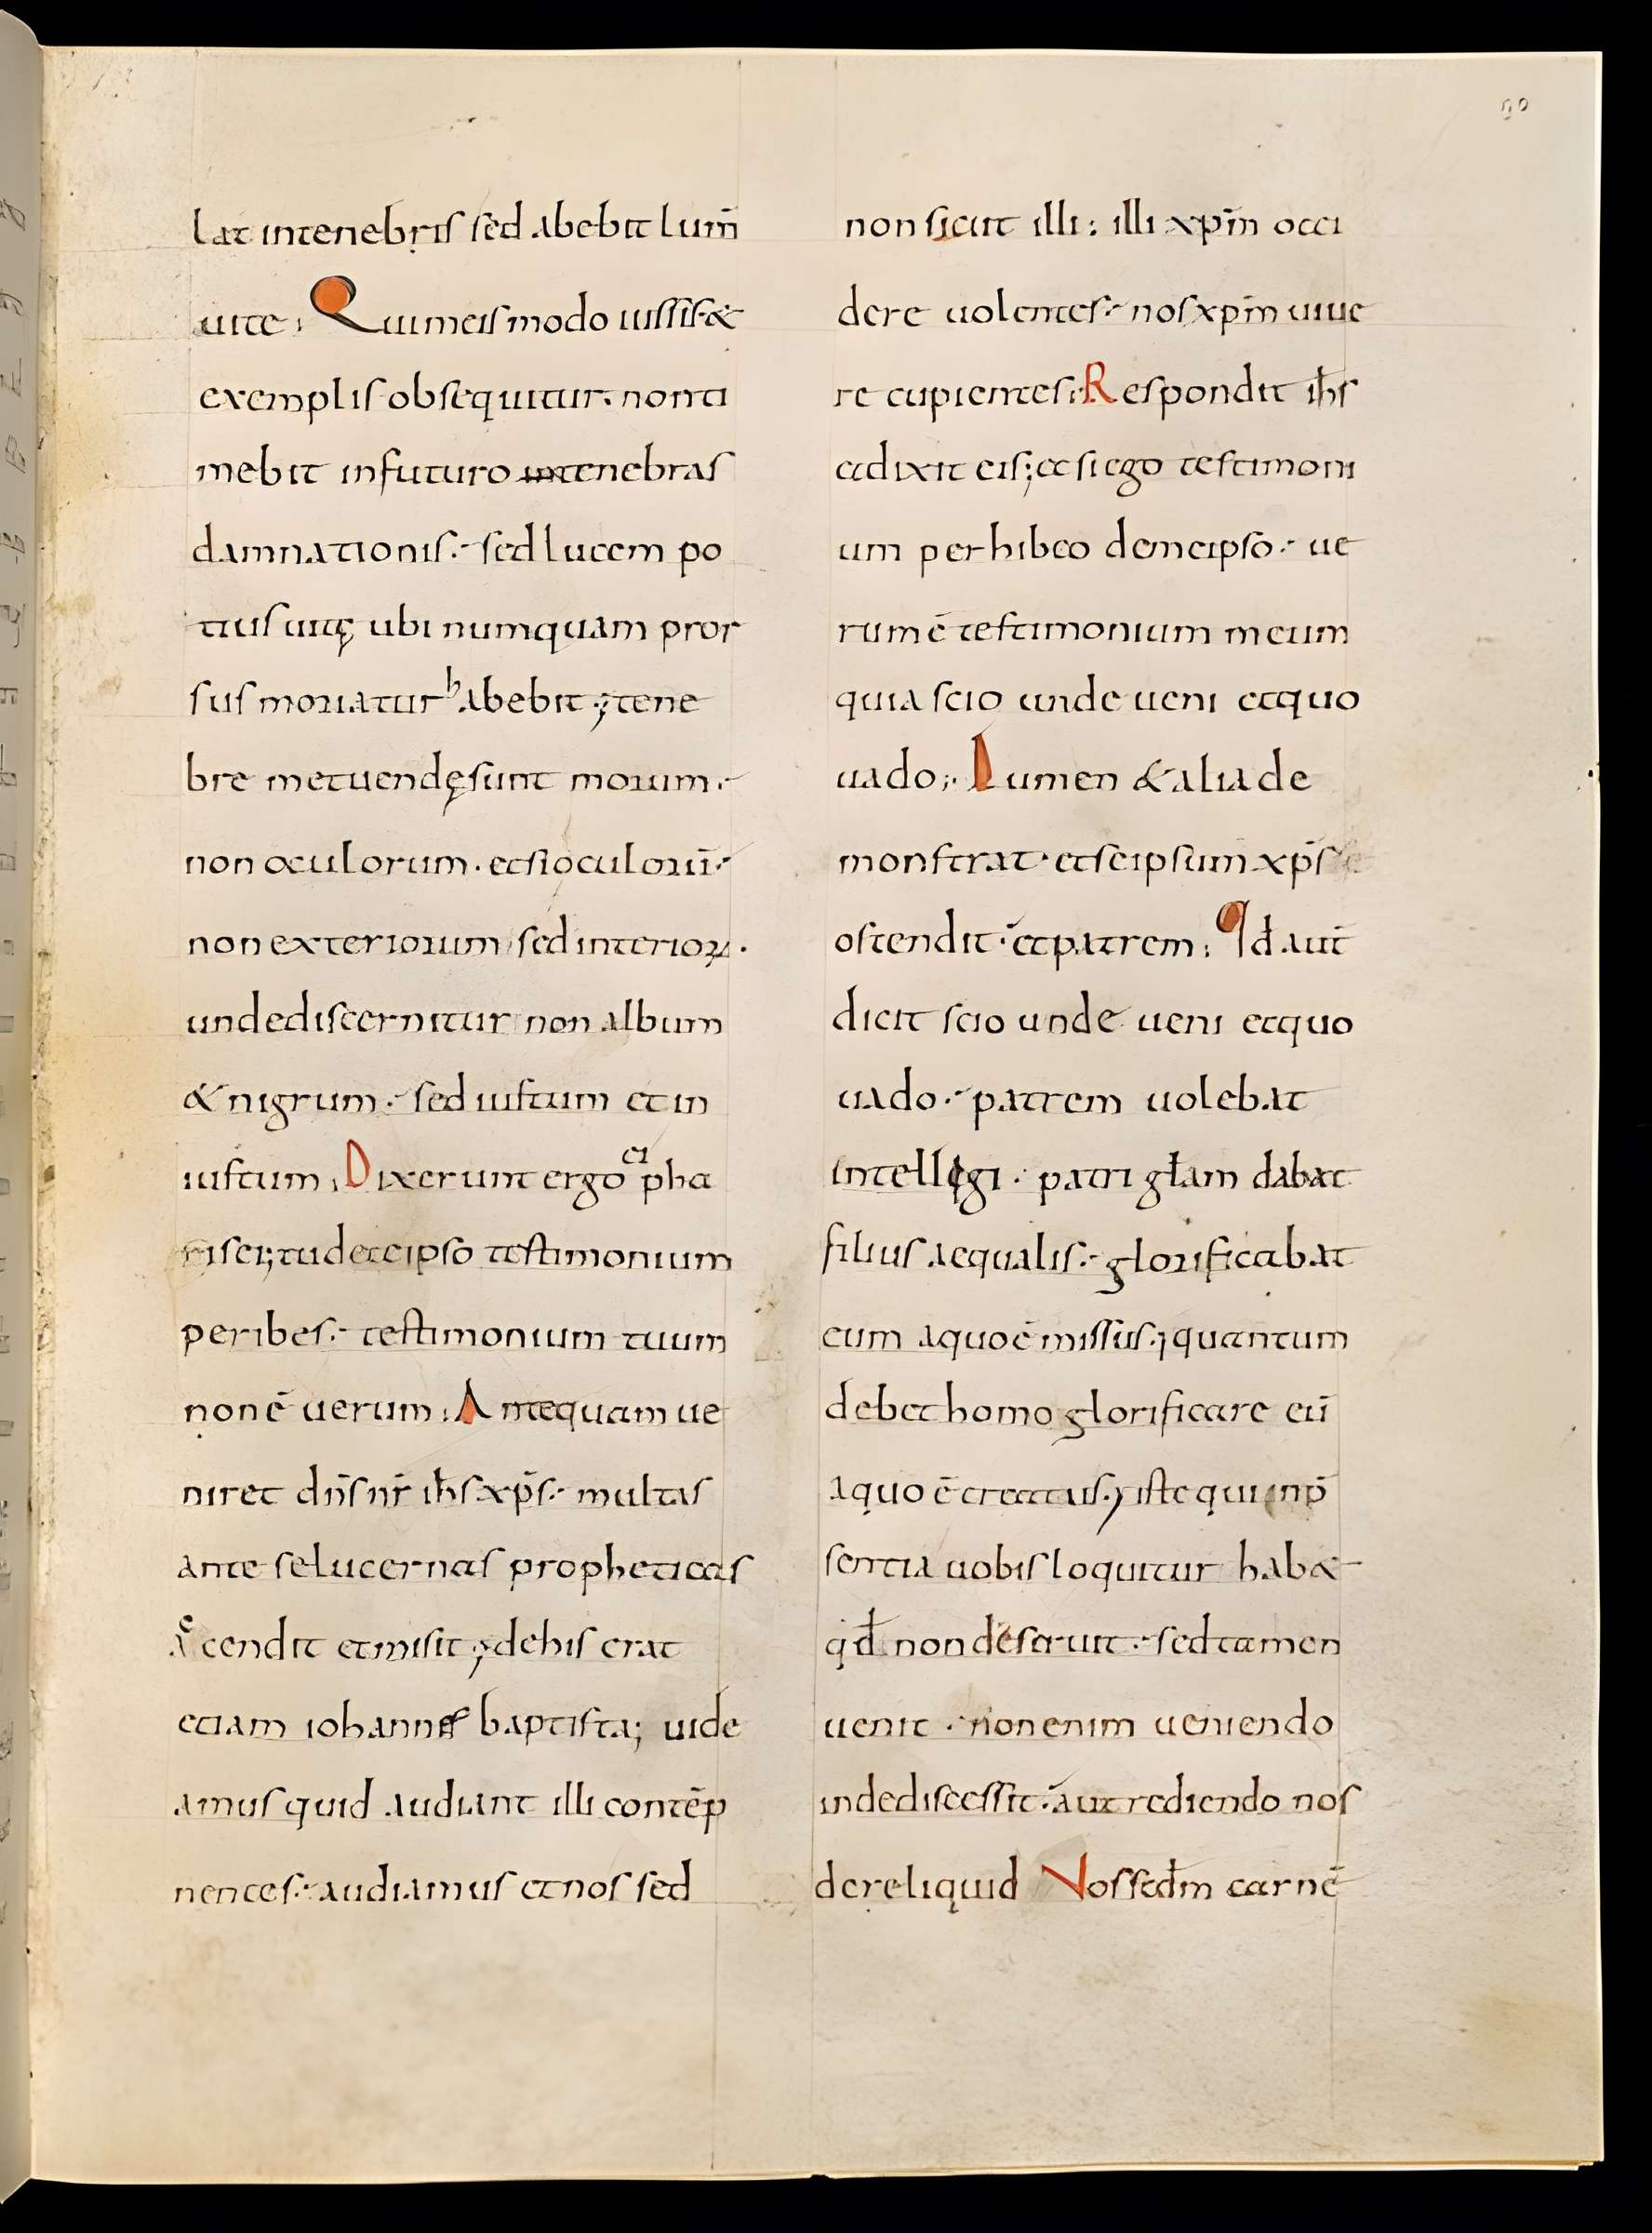 90
lat intenebris sed abebit lum̄
uite; Qui meis modo iussis &
exemplis obsequitur. non ti
mebit infuturo in tenebras
damnationis. sed lucem po
tius uitę ubi numquam pror
sus moriatur habebit; tene
bre metuendę sunt morum.
non oculorum. et si oculorū.
non exteriorum sed interioꝝ.
undediscernitur non album
& nigrum. sed iustum et in
iustum; Dixerunt ergo ei pha
risei; tudeteipso testimonium
peribes. testimonium tuum
non ē uerum; Antequam ue
niret dn̄s nr̄ ih̄s xp̄s. multas
ante se lucernas propheticas
accendit et misit; de his erat
etiam iohannes baptista; uide
amus quid audiant illi contēp
nentes. audiamus et nos sed
non sicut illi; illi xp̄m occi
dere uolentes. nos xp̄m uiue
re cupientes; Respondit ih̄s
et dixit eis; et si ego testimoni
um perhibeo demeipso. ue
rum ē testimonium meum
quia scio unde ueni et quo
uado; Lumen & alia de
monstrat. et seipsum xp̄s
ostendit. et patrem; Id aut̄
dicit scio unde ueni et quo
uado. patrem uolebat
intellegi. patri gl̄am dabat
filius aequalis. glorificabat
eum aquo ē missus; quantum
debet homo glorificare eū
aquo ē creatus; iste qui inp̄
sentia uobis loquitur hab&
qđ non deseruit. sed tamen
uenit. non enim ueniendo
indediscessit. aut rediendo nos
dereliquid Vos secđm carnē